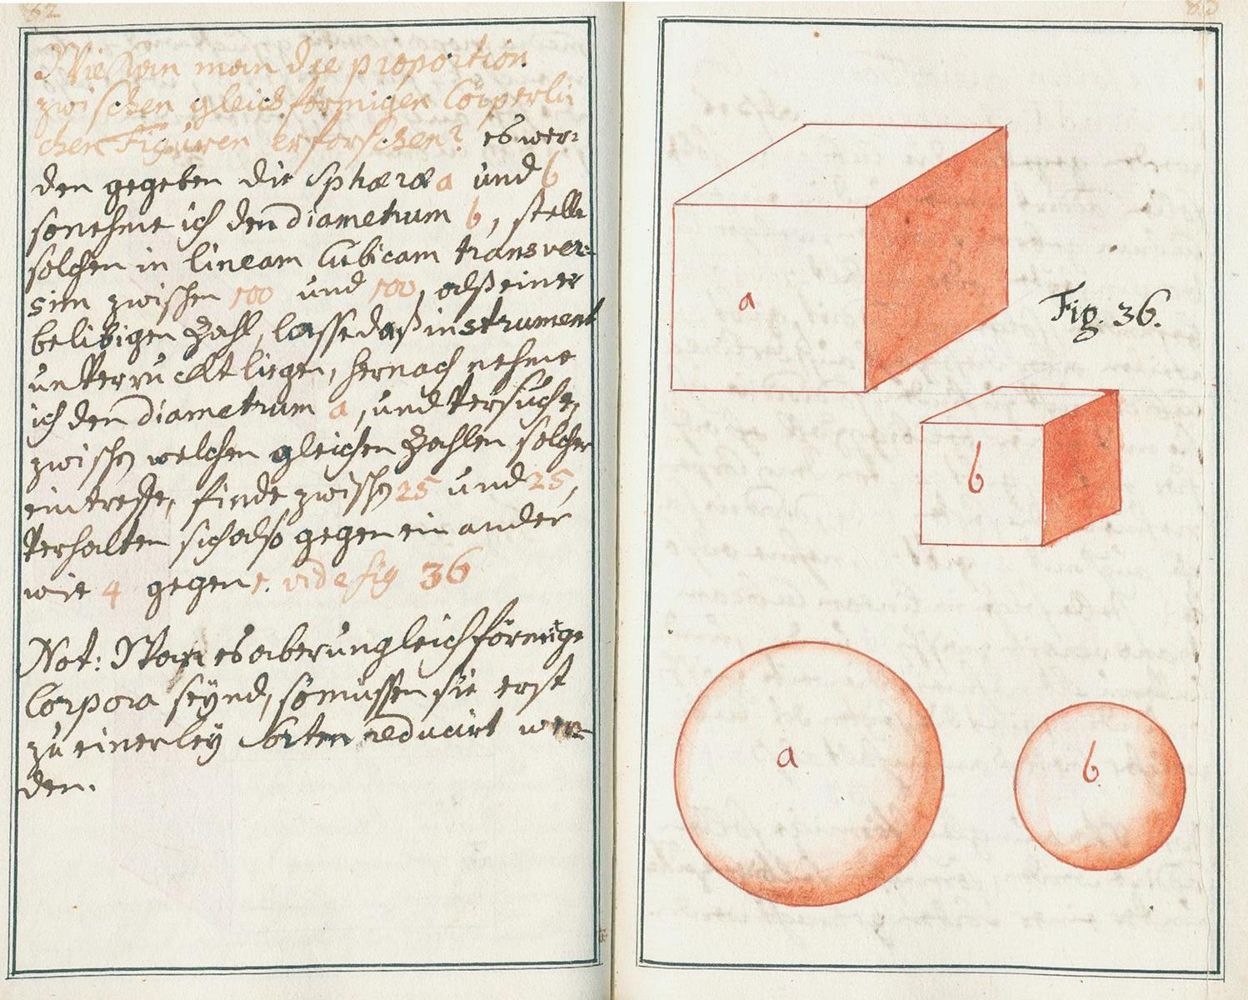 62
Wie kan man die proportion
zwischen gleichförmigen Cörperli
chen Figuren erforschen? es wer-
den gegeben die Sphæræ a und b
so nehme ich den diametrum b, stelle
solchen in lineam Cubicam transver-
sim zwischen 100 und 100, alß einer
belibigen Zahl, lasse daß instrument
unverruckt ligen, hernach nehme
ich den diametrum a, und versuche,
zwischen welchen gleichen Zahlen solcher
eintreffe, finde zwischen 25 und 25,
verhalten sich also gegen ein ander
wie 4 gegen 1. vide fig 36
Not: Wan es aber ungleichförmige
Corpora seynd, so müssen sie erst
zu einerley Sorten reducirt wer-
den.
83
a
Fig. 36.
b
a
b